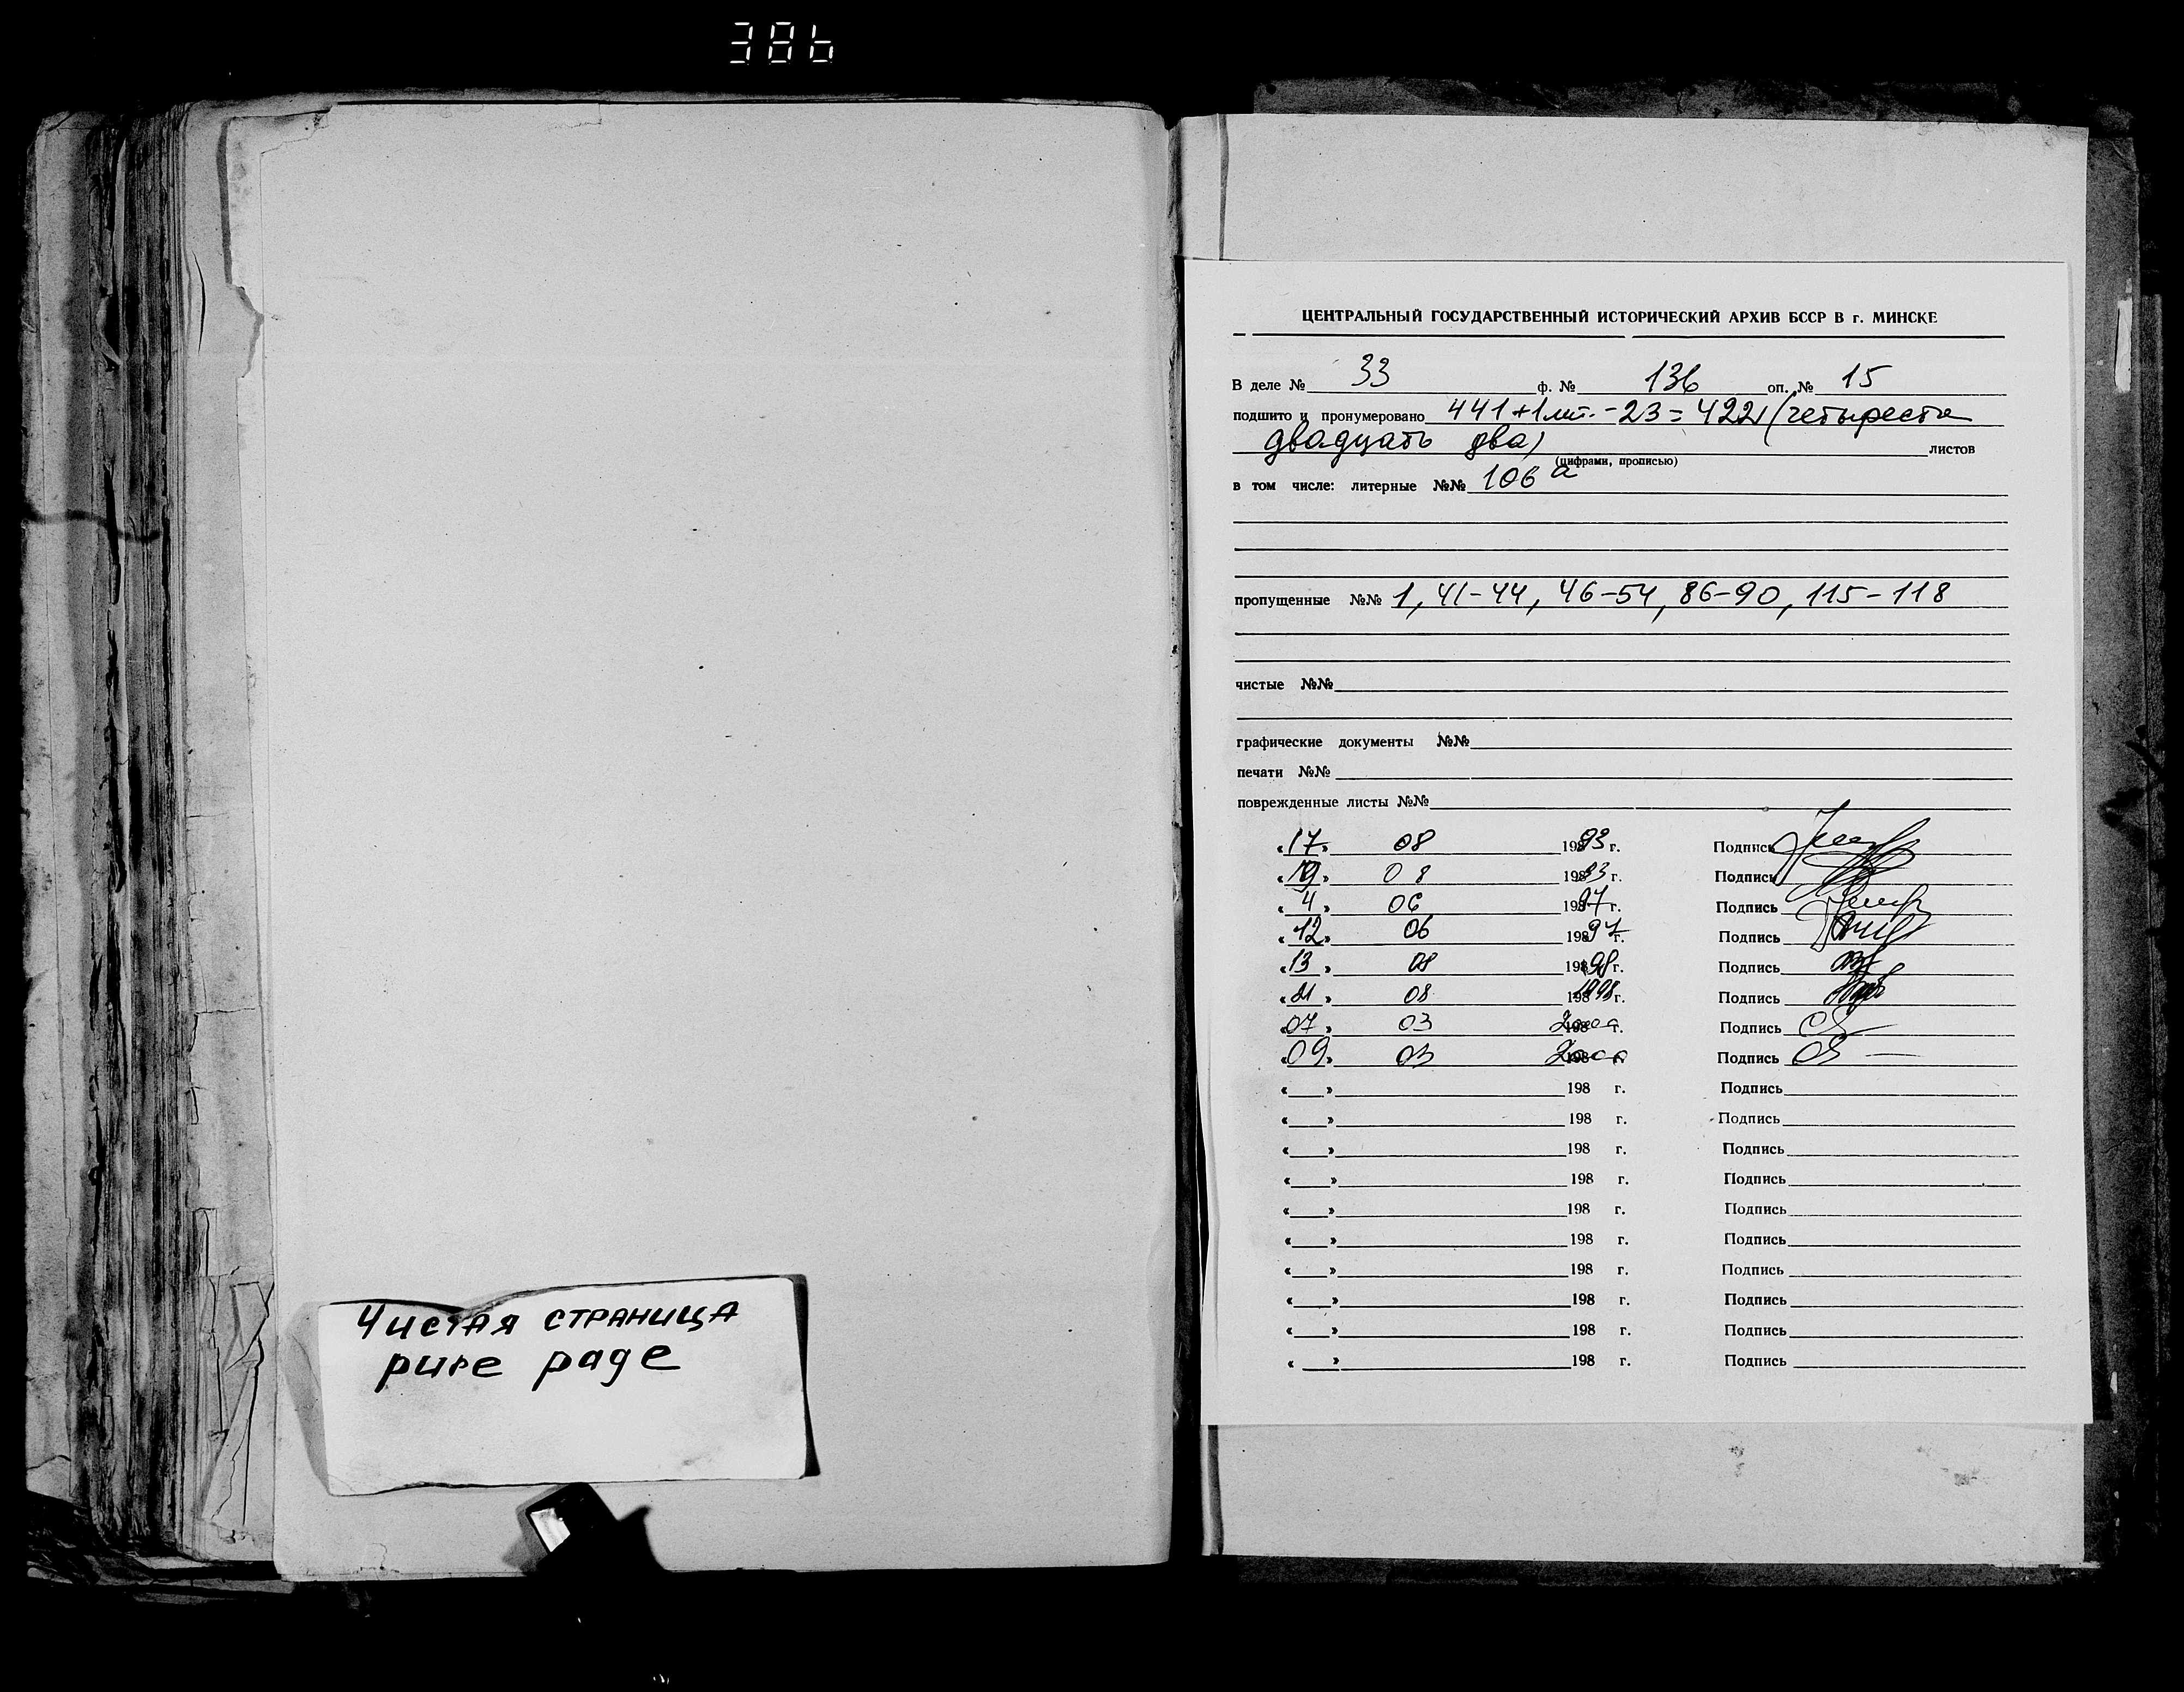 386
Чистая страница
pure page
ЦЕНТРАЛЬНЫЙ ГОСУДАРСТВЕННЫЙ ИСТОРИЧЕСКИЙ АРХИВ БССР В г. МИНСКЕ
В деле № 33 ф. № 136 оп. № 15
подшито и пронумеровано 441+1лит.-23=422 (четыреста
двадцать два) листов
(цифрами, прописью)
в том числе: литерные №№ 106а
пропущенные №№ 1, 41-44, 46-54, 86-90, 115-118
чистые №№
графические документы №№
печати №№
поврежденные листы №№
«17» 08 1993 г. Подпись
«19» 08 1993 г. Подпись
«4» 06 1997 г. Подпись
«12» 06 1997 г. Подпись
«13» 08 1998 г. Подпись
«21» 08 1998 г. Подпись
«07» 03 2000 г. Подпись
«09» 03 2000 г. Подпись
«__» 198 г. Подпись
«__» 198 г. Подпись
«__» 198 г. Подпись
«__» 198 г. Подпись
«__» 198 г. Подпись
«__» 198 г. Подпись
«__» 198 г. Подпись
«__» 198 г. Подпись
«__» 198 г. Подпись
«__» 198 г. Подпись